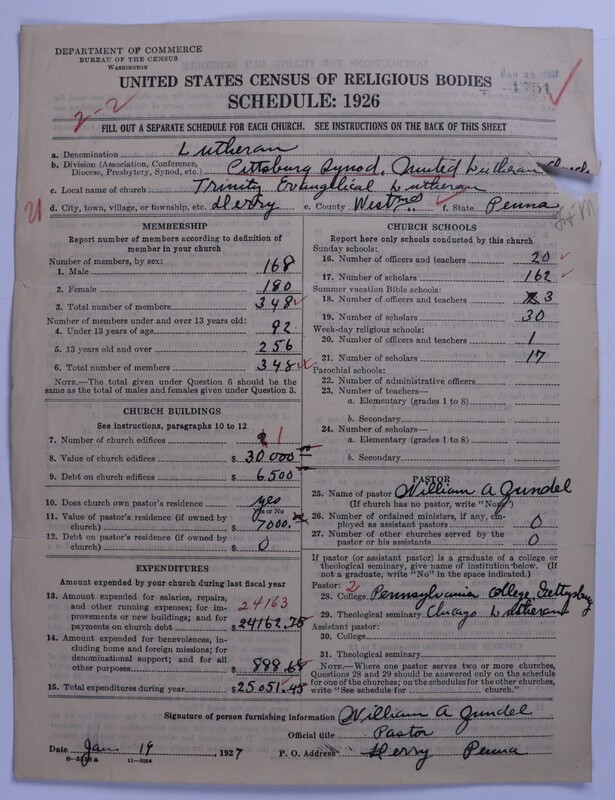 DEPARTMENT OF COMMERCE
BUREAU OF THE CENSUS
WASHINGTON
UNITED STATES CENSUS OF RELIGIOUS BODIES
SCHEDULE: 1926
1751
2-2
FILL OUT A SEPARATE SCHEDULE FOR EACH CHURCH. SEE INSTRUCTIONS ON THE BACK OF THIS SHEET
a. Denomination Lutheran
b. Division (Association, Conference, Diocese, Presbytery, Synod, etc.) Pittsburg Synod, United Lutheran Church.
c. Local name of church Trinity Evangelical Lutheran
d. City, town, village, or township, etc. Derry e. County Westmd f. State Penna
MEMBERSHIP
Report number of members according to definition of
member in your church
Number of members, by sex:
1. Male 168
2. Female 180
3. Total number of members 348
Number of members under and over 13 years old:
4. Under 13 years of age 92
5. 13 years old and over 256
6. Total number of members 348
NOTE.—The total given under Question 6 should be
the same as the total of males and females given under Question 3.
CHURCH BUILDINGS
See instructions, paragraphs 10 to 12
7. Number of church edifices 1
8. Value of church edifices $ 30000
9. Debt on church edifices $ 6500
10. Does church own pastor's residence yes
Yes or No
11. Value of pastor's residence (if owned by
church) $ 7000.
12. Debt on pastor's residence (if owned by
church) $ 0
EXPENDITURES
Amount expended by your church during last fiscal year
13. Amount expended for salaries, repairs,
and other running expenses; for im- 24163
provements or new buildings; and for
payments on church debt $ 24162.78
14. Amount expended for benevolences,
including home and foreign missions; for
denominational support; and for all
other purposes $ 888.68
15. Total expenditures during year $ 25051.45
CHURCH SCHOOLS
Report here only schools conducted by this church
Sunday schools:
16. Number of officers and teachers 20
17. Number of scholars 162
Summer vacation Bible schools:
18. Number of officers and teachers 3
19. Number of scholars 30
Week-day religious schools:
20. Number of officers and teachers 1
21. Number of scholars 17
Parochial schools:
22. Number of administrative officers
23. Number of teachers—
a. Elementary (grades 1 to 8)
b. Secondary
24. Number of scholars—
a. Elementary (grades 1 to 8)
b. Secondary
PASTOR
25. Name of pastor William A Zundel
(If church has no pastor, write "None")
26. Number of ordained ministers, if any, em-
ployed as assistant pastors 0
27. Number of other churches served by the
pastor or his assistants 0
If pastor (or assistant pastor) is a graduate of a college or
theological seminary, give name of institution below. (If
not a graduate, write "No" in the space indicated.)
Pastor: 2
28. College Pennsylvania College, Gettysburg
29. Theological seminary Chicago Lutheran
Assistant pastor:
30. College
31. Theological seminary
NOTE.—Where one pastor serves two or more churches,
Questions 28 and 29 should be answered only on the schedule
for one of the churches; on the schedules for the other churches,
write "See schedule for ........ church."
Signature of person furnishing information William A Zundel
Official title Pastor
Date Jan 19, 1927 P. O. Address Derry Penna
11-9204